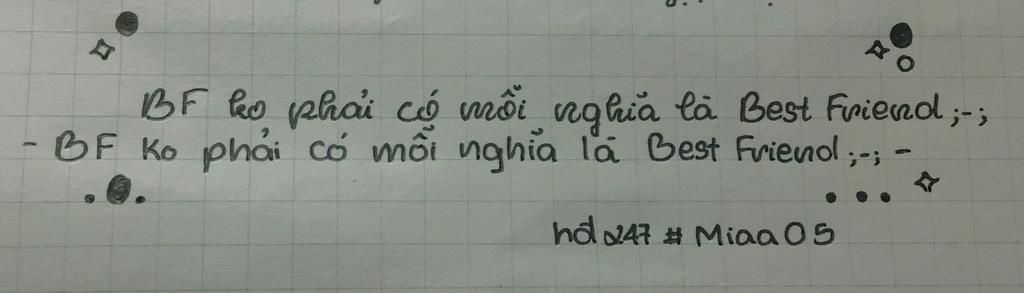 BF ko phải có mỗi nghĩa là Best Friend ;-;
- BF ko phải có mỗi nghĩa là Best Friend ;-; -
hd247 # Miaa05